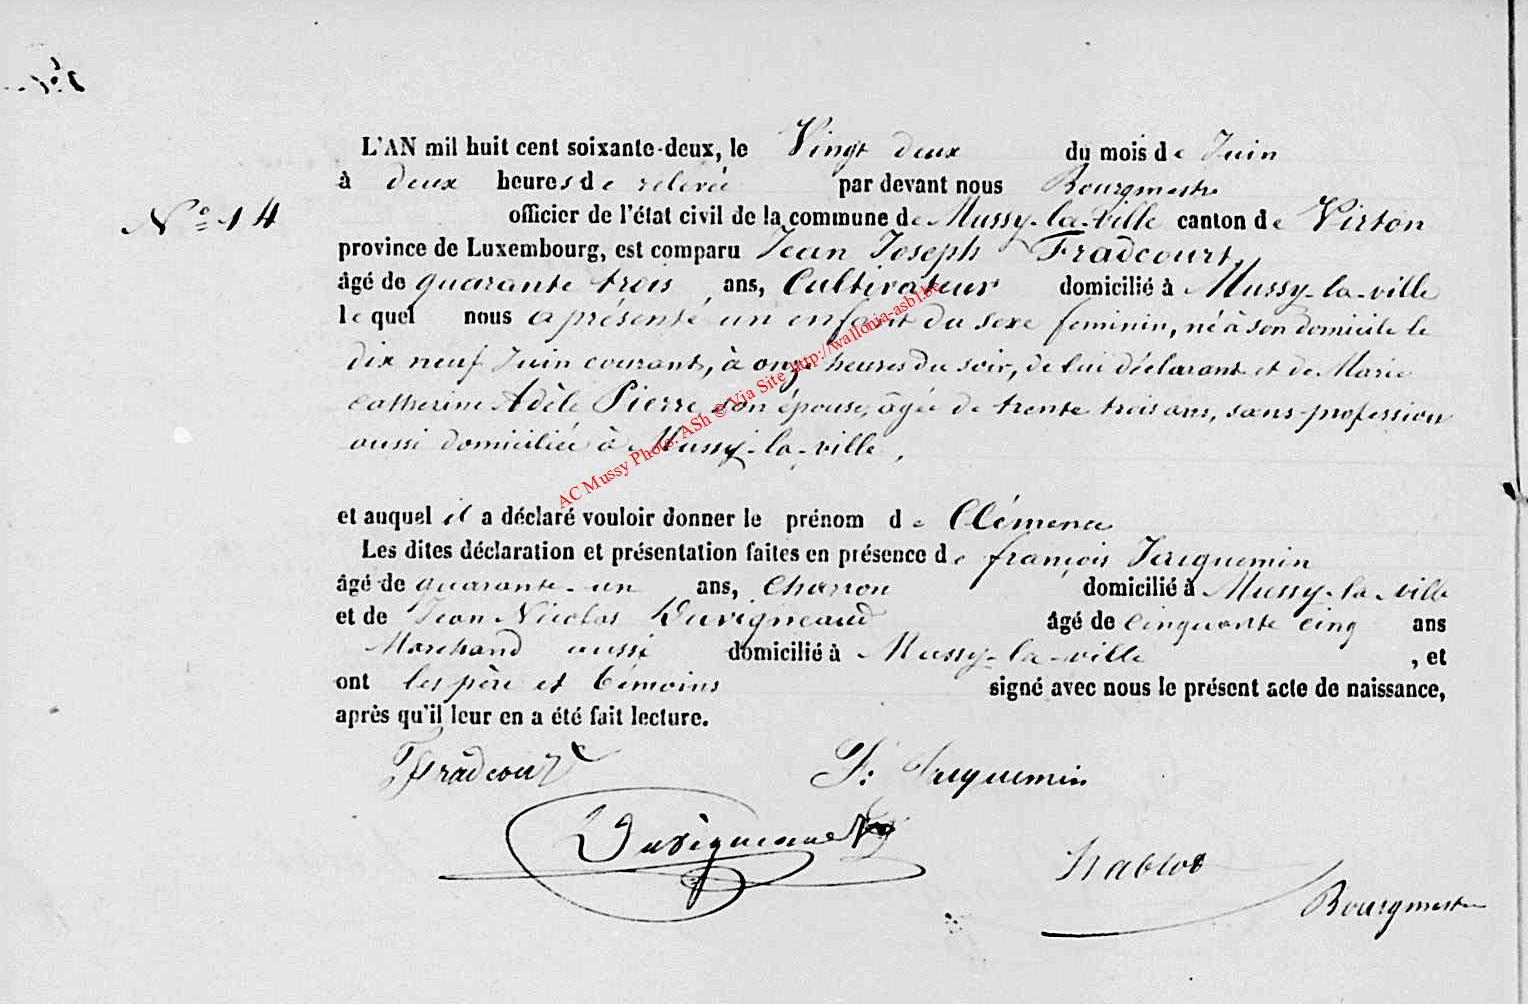 L'AN mil huit cent soixante-deux, le Vingt deux du mois de Juin
à deux heures de relevée par devant nous Bourgmestre
N° 14
officier de l'état civil de la commune de Mussy-la-ville canton de Virton
province de Luxembourg, est comparu Jean Joseph Fradcourt,
âgé de quarante trois ans, Cultivateur domicilié à Mussy-la-ville
lequel nous a présenté un enfant du sexe feminin, né à son domicile le
dix neuf Juin courant, à onze heures du soir, de lui déclarant et de Marie
Catherine Adèle Pierre son épouse, âgée de trente trois ans, sans profession
aussi domiciliée à Mussy-la-ville,
AC Mussy Photo: ASh © Via Site http://wallonia-asbl.be
et auquel il a déclaré vouloir donner le prénom de Clémence
Les dites déclaration et présentation faites en présence de françois Jacquemin
âgé de quarante-un ans, Charron domicilié à Mussy-la-ville
et de Jean Nicolas Duvigneaud âgé de Cinquante cinq ans
Marchand aussi domicilié à Mussy-la-ville, et
ont les père et témoins signé avec nous le présent acte de naissance,
après qu'il leur en a été fait lecture.
Fradcourt F: Jacquemin
Duvigneaud
Bourgmestre